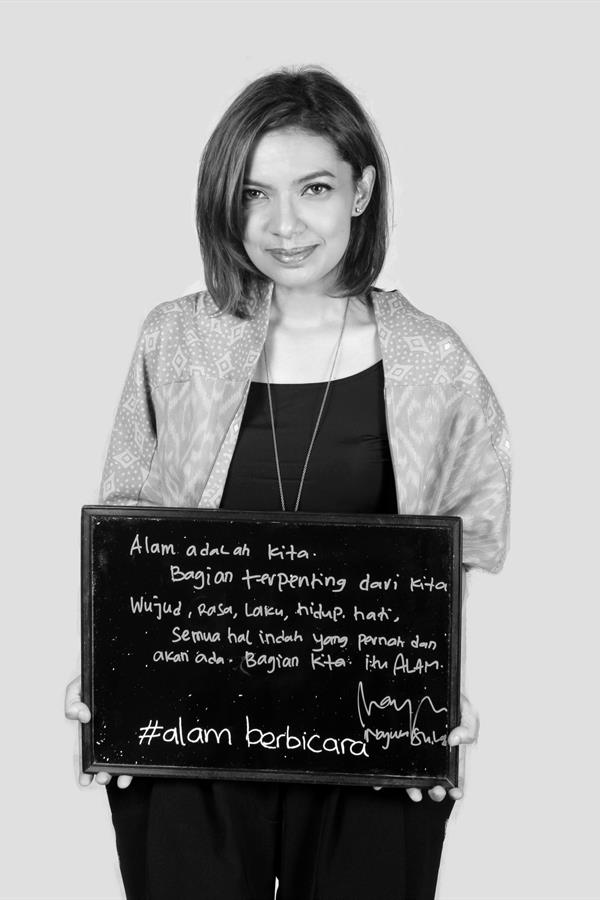 Alam adalah kita.
Bagian terpenting dari kita
Wujud, rasa, laku, hidup. hati,
Semua hal indah yang pernah dan
akan ada. Bagian kita itu ALAM.
#alam berbicara